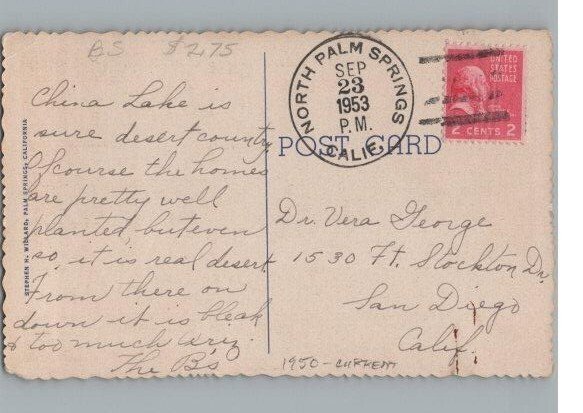 BS $2.75
NORTH PALM SPRINGS
SEP
23
1953
P.M.
CALIF.
UNITED
STATES
POSTAGE
2 CENTS 2
POST CARD
STEPHEN H. WILLARD, PALM SPRINGS, CALIFORNIA
China Lake is
sure desert country
Of course the homes
are pretty well
planted but even
so it is real desert.
From there on
down it is bleak
& too much Ariz.
The B's
Dr. Vera George
1530 Ft. Stockton Dr.
San Diego
Calif.
1950 - CURRENT